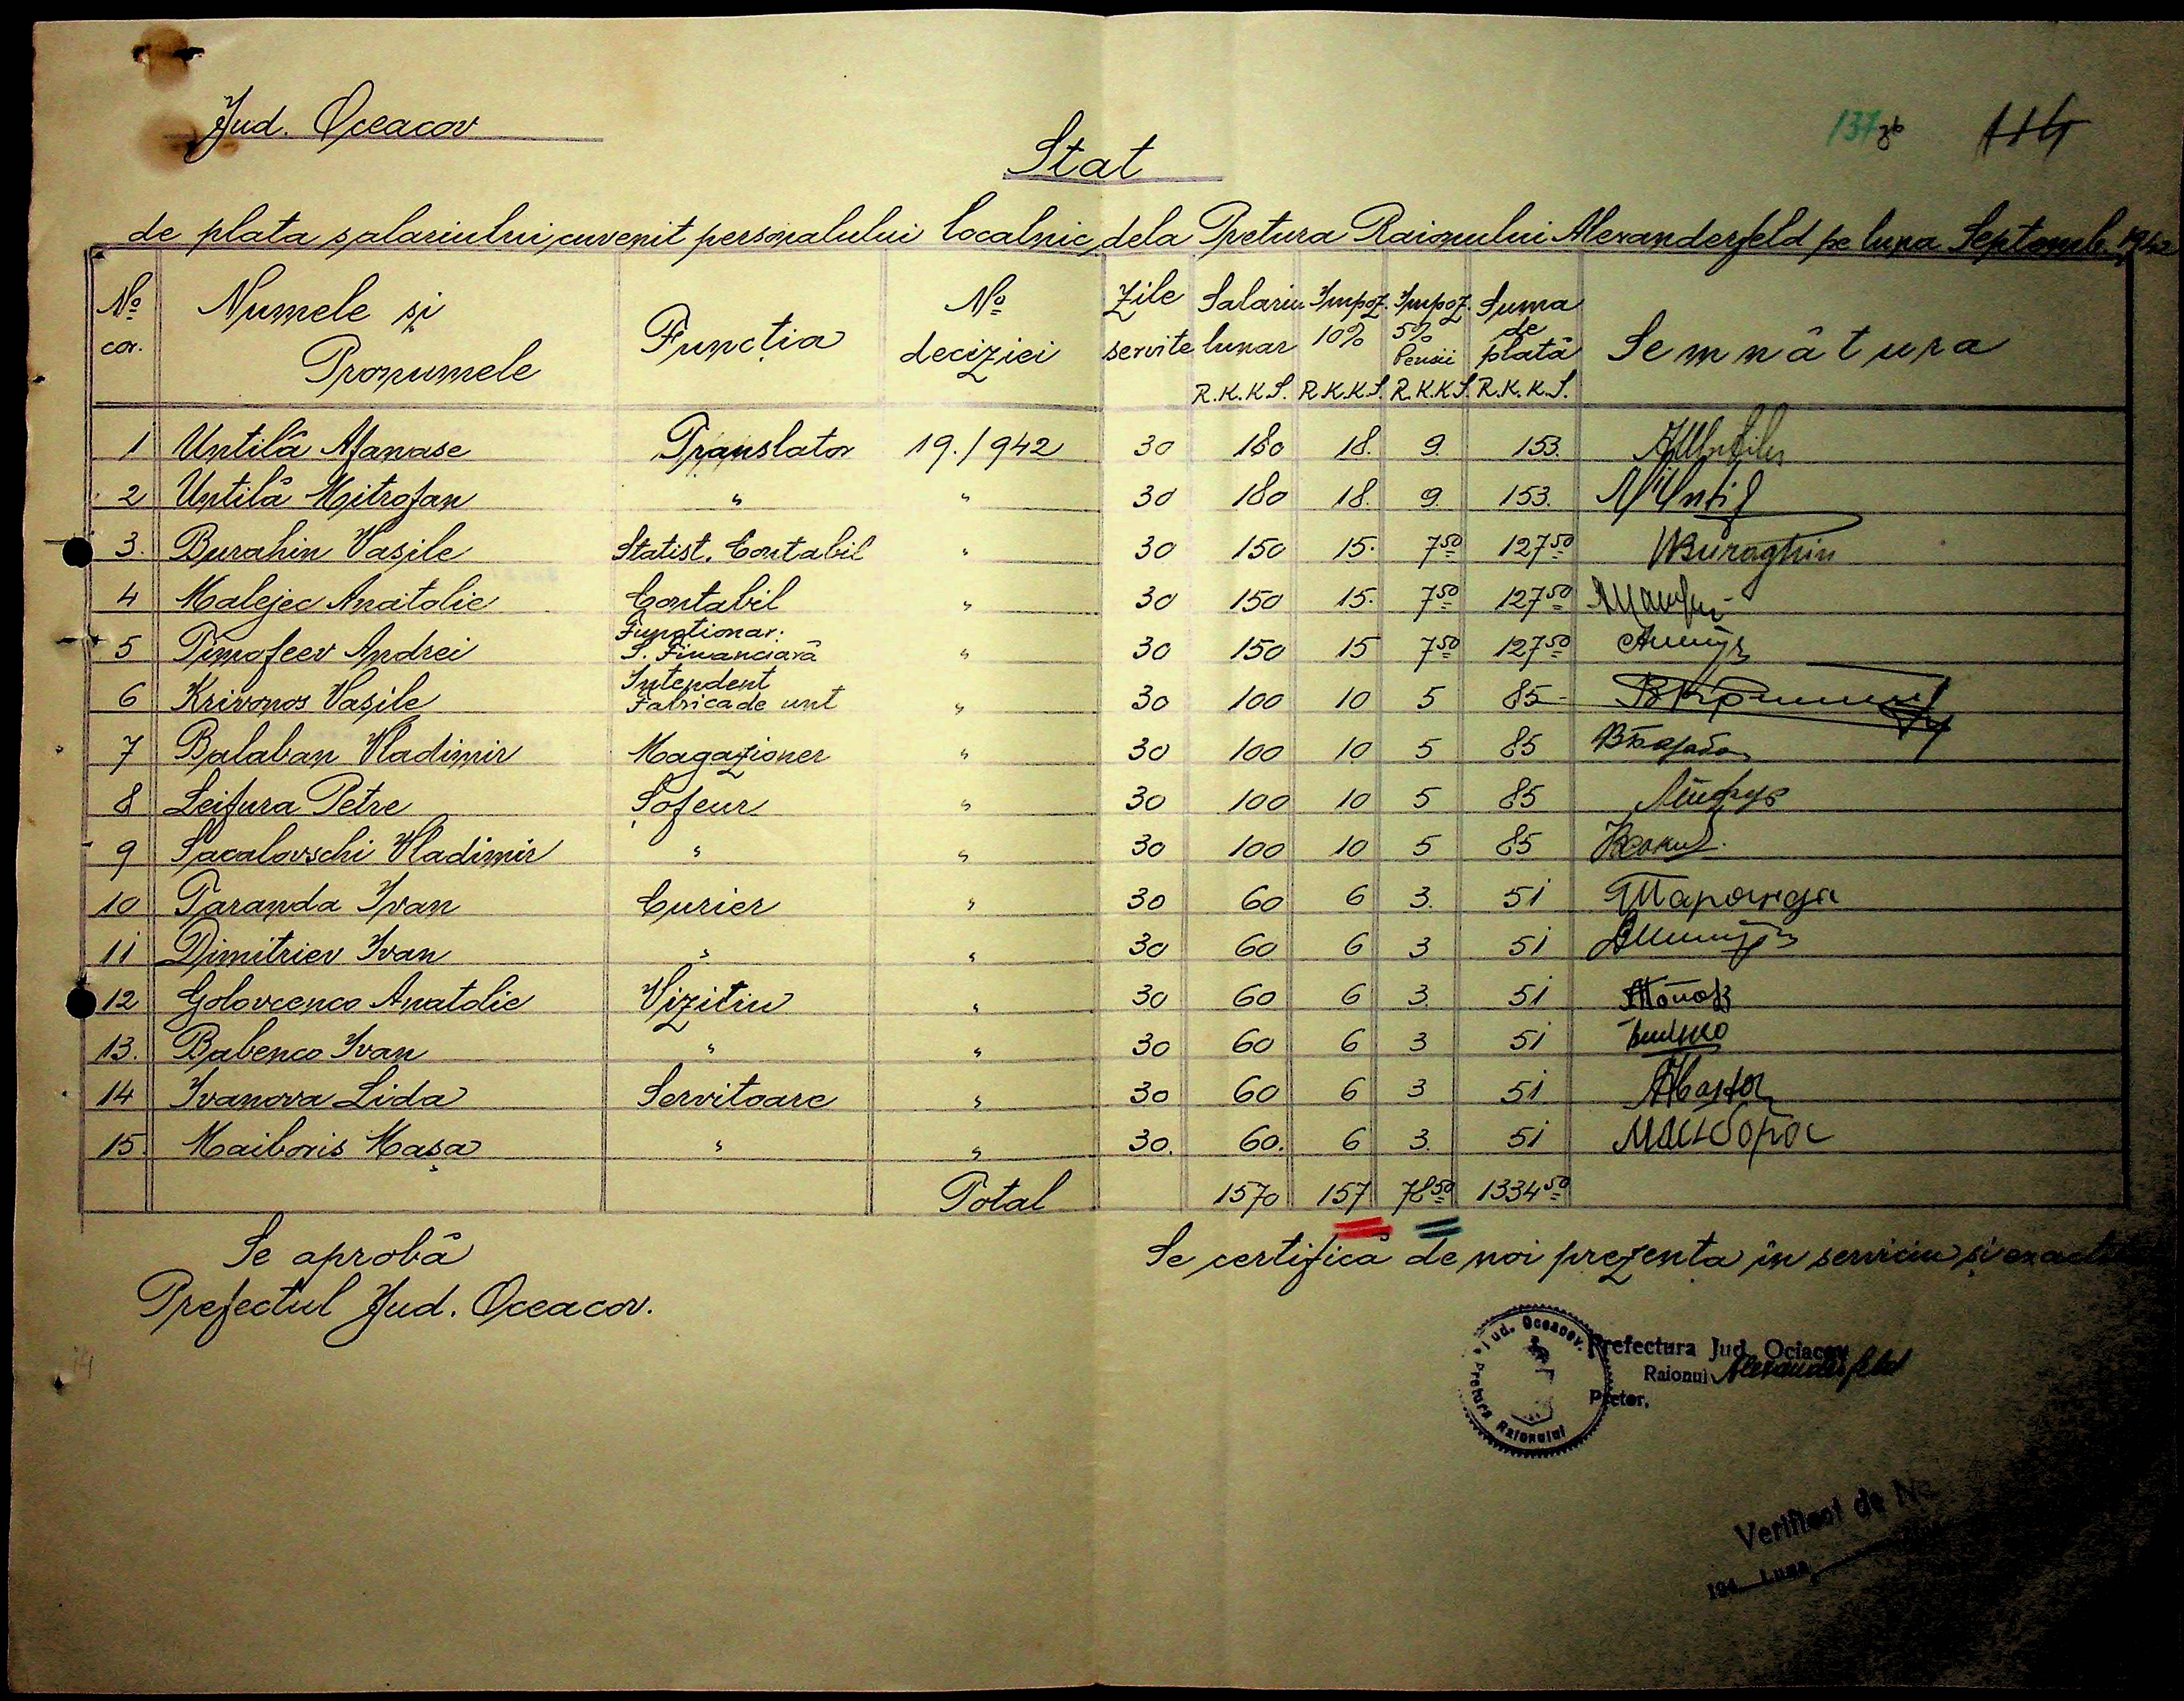 Jud. Oceacov
137
Stat
de plata salariului cuvenit personalului localnic dela Pretura Raionului Alexanderfeld pe luna Septemb. 1942
No cor. Numele și Pronumele Funcția No deciziei Zile servite Salariu lunar Impoz. 10% Impoz. 5% Pensii Suma de plată Semnătura
R.K.K.S. R.K.K.S. R.K.K.S. R.K.K.S.
1 Untilă Afanase Translator 19./942 30 180 18. 9. 153.
2 Untilă Mitrofan " " 30 180 18. 9. 153.
3. Burahin Vasile Statist. Contabil " 30 150 15. 7 50 127 50 Buraghin
4 Malejec Anatolie Contabil " 30 150 15. 7 50 127 50
5 Timofeev Andrei Funcționar. S. Financiară " 30 150 15 7 50 127 50
6 Krivonos Vasile Intendent Fabrica de unt " 30 100 10 5 85-
7 Balaban Vladimir Magazioner " 30 100 10 5 85
8 Leifura Petre Șofeur " 30 100 10 5 85
9 Sacalovschi Vladimir " " 30 100 10 5 85
10 Taranda Ivan Curier " 30 60 6 3. 51 Таранда
11 Dimitriev Ivan " " 30 60 6 3 51
12 Golovcenco Anatolie Vizitiu " 30 60 6 3. 51
13. Babenco Ivan " " 30 60 6 3 51
14 Ivanova Lida Servitoare " 30 60 6 3 51
15. Maiboris Mașa " " 30. 60. 6 3. 51
Total 1570 157 78 50 1334 50
Se aprobă
Prefectul Jud. Oceacov.
Se certifică de noi prezenta în serviciu și
Jud. Oceacov. Pretura Raionului
Prefectura Jud. Ociacov
Raionul Alexanderfeld
Pretor,
Verificat de
194 Luna